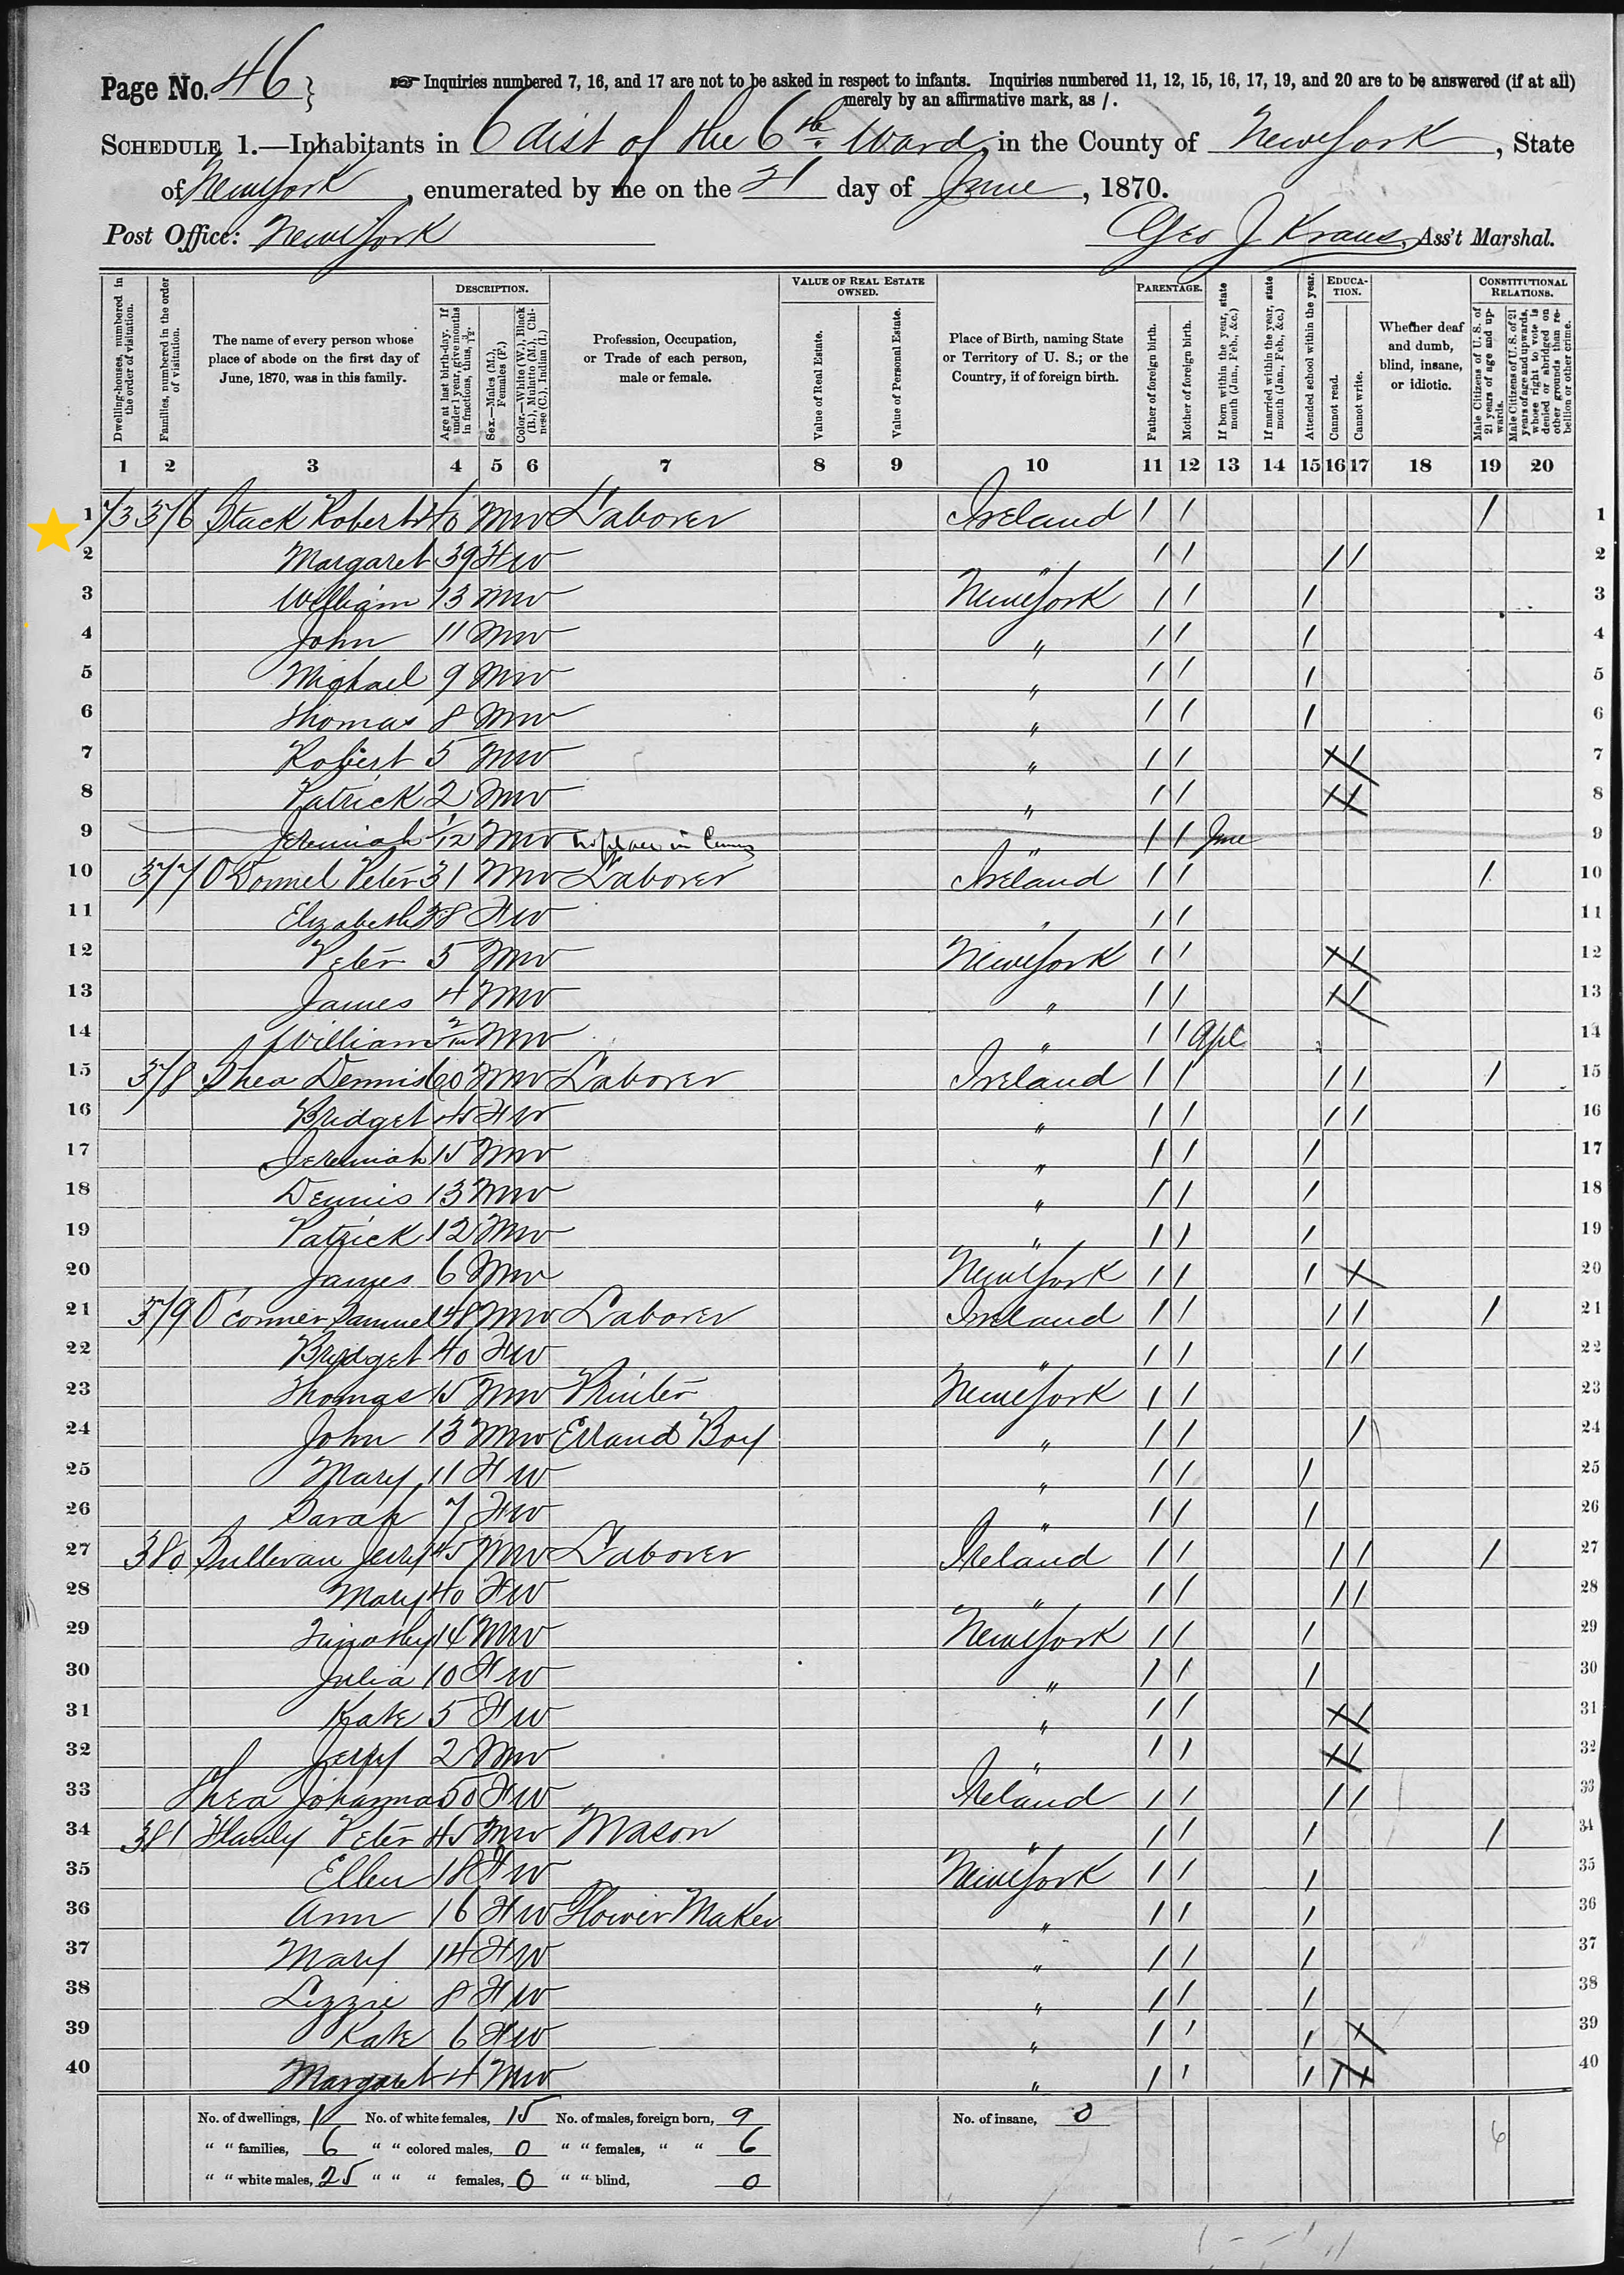 Page No. 46
Inquiries numbered 7, 16, and 17 are not to be asked in respect to infants. Inquiries numbered 11, 12, 15, 16, 17, 19, and 20 are to be answered (if at all)
merely by an affirmative mark, as /.
SCHEDULE 1.—Inhabitants in 6 dist of the 6th Ward, in the County of New York, State
of New York, enumerated by me on the 21 day of June, 1870.
Post Office: New York
Geo J Kraus, Ass't Marshal.
Dwelling-houses, numbered in the order of visitation.
Families, numbered in the order of visitation.
The name of every person whose place of abode on the first day of June, 1870, was in this family.
DESCRIPTION.
Age at last birth-day. If under 1 year, give months in fractions, thus, 3/12.
Sex.—Males (M.), Females (F.)
Color.—White (W.), Black (B.), Mulatto (M.), Chinese (C.), Indian (I.)
Profession, Occupation, or Trade of each person, male or female.
VALUE OF REAL ESTATE OWNED.
Value of Real Estate.
Value of Personal Estate.
Place of Birth, naming State or Territory of U. S.; or the Country, if of foreign birth.
PARENTAGE.
Father of foreign birth.
Mother of foreign birth.
If born within the year, state month (Jan., Feb., &c.)
If married within the year, state month (Jan., Feb., &c.)
Attended school within the year.
EDUCATION.
Cannot read.
Cannot write.
Whether deaf and dumb, blind, insane, or idiotic.
CONSTITUTIONAL RELATIONS.
Male Citizens of U. S. of 21 years of age and upwards.
Male Citizens of U. S. of 21 years of age and upwards, whose right to vote is denied or abridged on other grounds than rebellion or other crime.
1 2 3 4 5 6 7 8 9 10 11 12 13 14 15 16 17 18 19 20
1 73 376 Stack Robert 40 M W Laborer Ireland / / / 1
2 Margaret 39 F W " / / / / 2
3 William 13 M W New York / / / 3
4 John 11 M W " / / / 4
5 Michael 9 M W " / / / 5
6 Thomas 8 M W " / / / 6
7 Robert 5 M W " / / / / 7
8 Patrick 2 M W " / / / / 8
9 Jeremiah 1/12 M W no place in Census " / / June 9
10 377 O Donnel Peter 31 M W Laborer Ireland / / / 10
11 Elizabeth 28 F W " / / 11
12 Peter 5 M W New York / / / / 12
13 James 4 M W " / / / / 13
14 William 2/12 M W " / / Apl 14
15 378 Shea Dennis 60 M W Laborer Ireland / / / / / 15
16 Bridget F W " / / / / 16
17 Jeremiah 15 M W " / / / 17
18 Dennis 13 M W " / / / 18
19 Patrick 12 M W " / / / 19
20 James 6 M W New York / / / / 20
21 379 O'conner Samuel 48 M W Laborer Ireland / / / / / 21
22 Bridget 40 F W " / / / / 22
23 Thomas 15 M W Printer New York / / 23
24 John 13 M W Errand Boy " / / / 24
25 Mary 11 F W " / / / 25
26 Sarah 7 F W " / / / 26
27 380 Sullivan Jerry 45 M W Laborer Ireland / / / / / 27
28 Mary 40 F W " / / / / 28
29 Timothy 14 M W New York / / / 29
30 Julia 10 F W " / / / 30
31 Kate 5 F W " / / / / 31
32 Jerry 2 M W " / / / / 32
33 Shea Johanna 50 F W Ireland / / / / 33
34 381 Hanly Peter 45 M W Mason " / / / / 34
35 Ellen 18 F W New York / / / 35
36 Ann 16 F W Flower Maker " / / / 36
37 Mary 14 F W " / / / 37
38 Lizzie 8 F W " / / / 38
39 Kate 6 F W " / / / / 39
40 Margaret 4 M W " / / / / / 40
No. of dwellings, 1 No. of white females, 15 No. of males, foreign born, 9 No. of insane, 0
" " families, 6 " " colored males, 0 " " females, " " 6 6
" " white males, 25 " " " females, 0 " " blind, 0